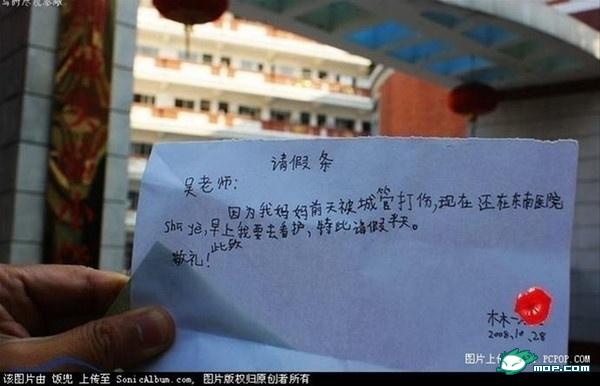 请假条
吴老师:
因为我妈妈前天被城管打伤,现在还在东南医院
shu yè,早上我要去看护,特此请假半天。
此致
敬礼!
木木一
2008.10.28
图片上传
PCPOP.COM
mop.com
该图片由 饭兜 上传至 SonicAlbum.com, 图片版权归原创者所有